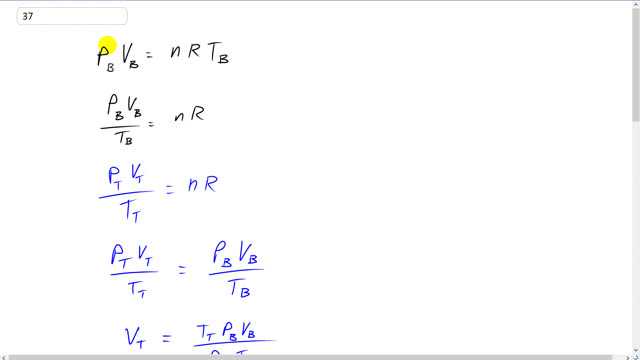 37
P_B V_B = n R T_B
P_B V_B / T_B = n R
P_T V_T / T_T = n R
P_T V_T / T_T = P_B V_B / T_B
V_T = T_T P_B V_B /